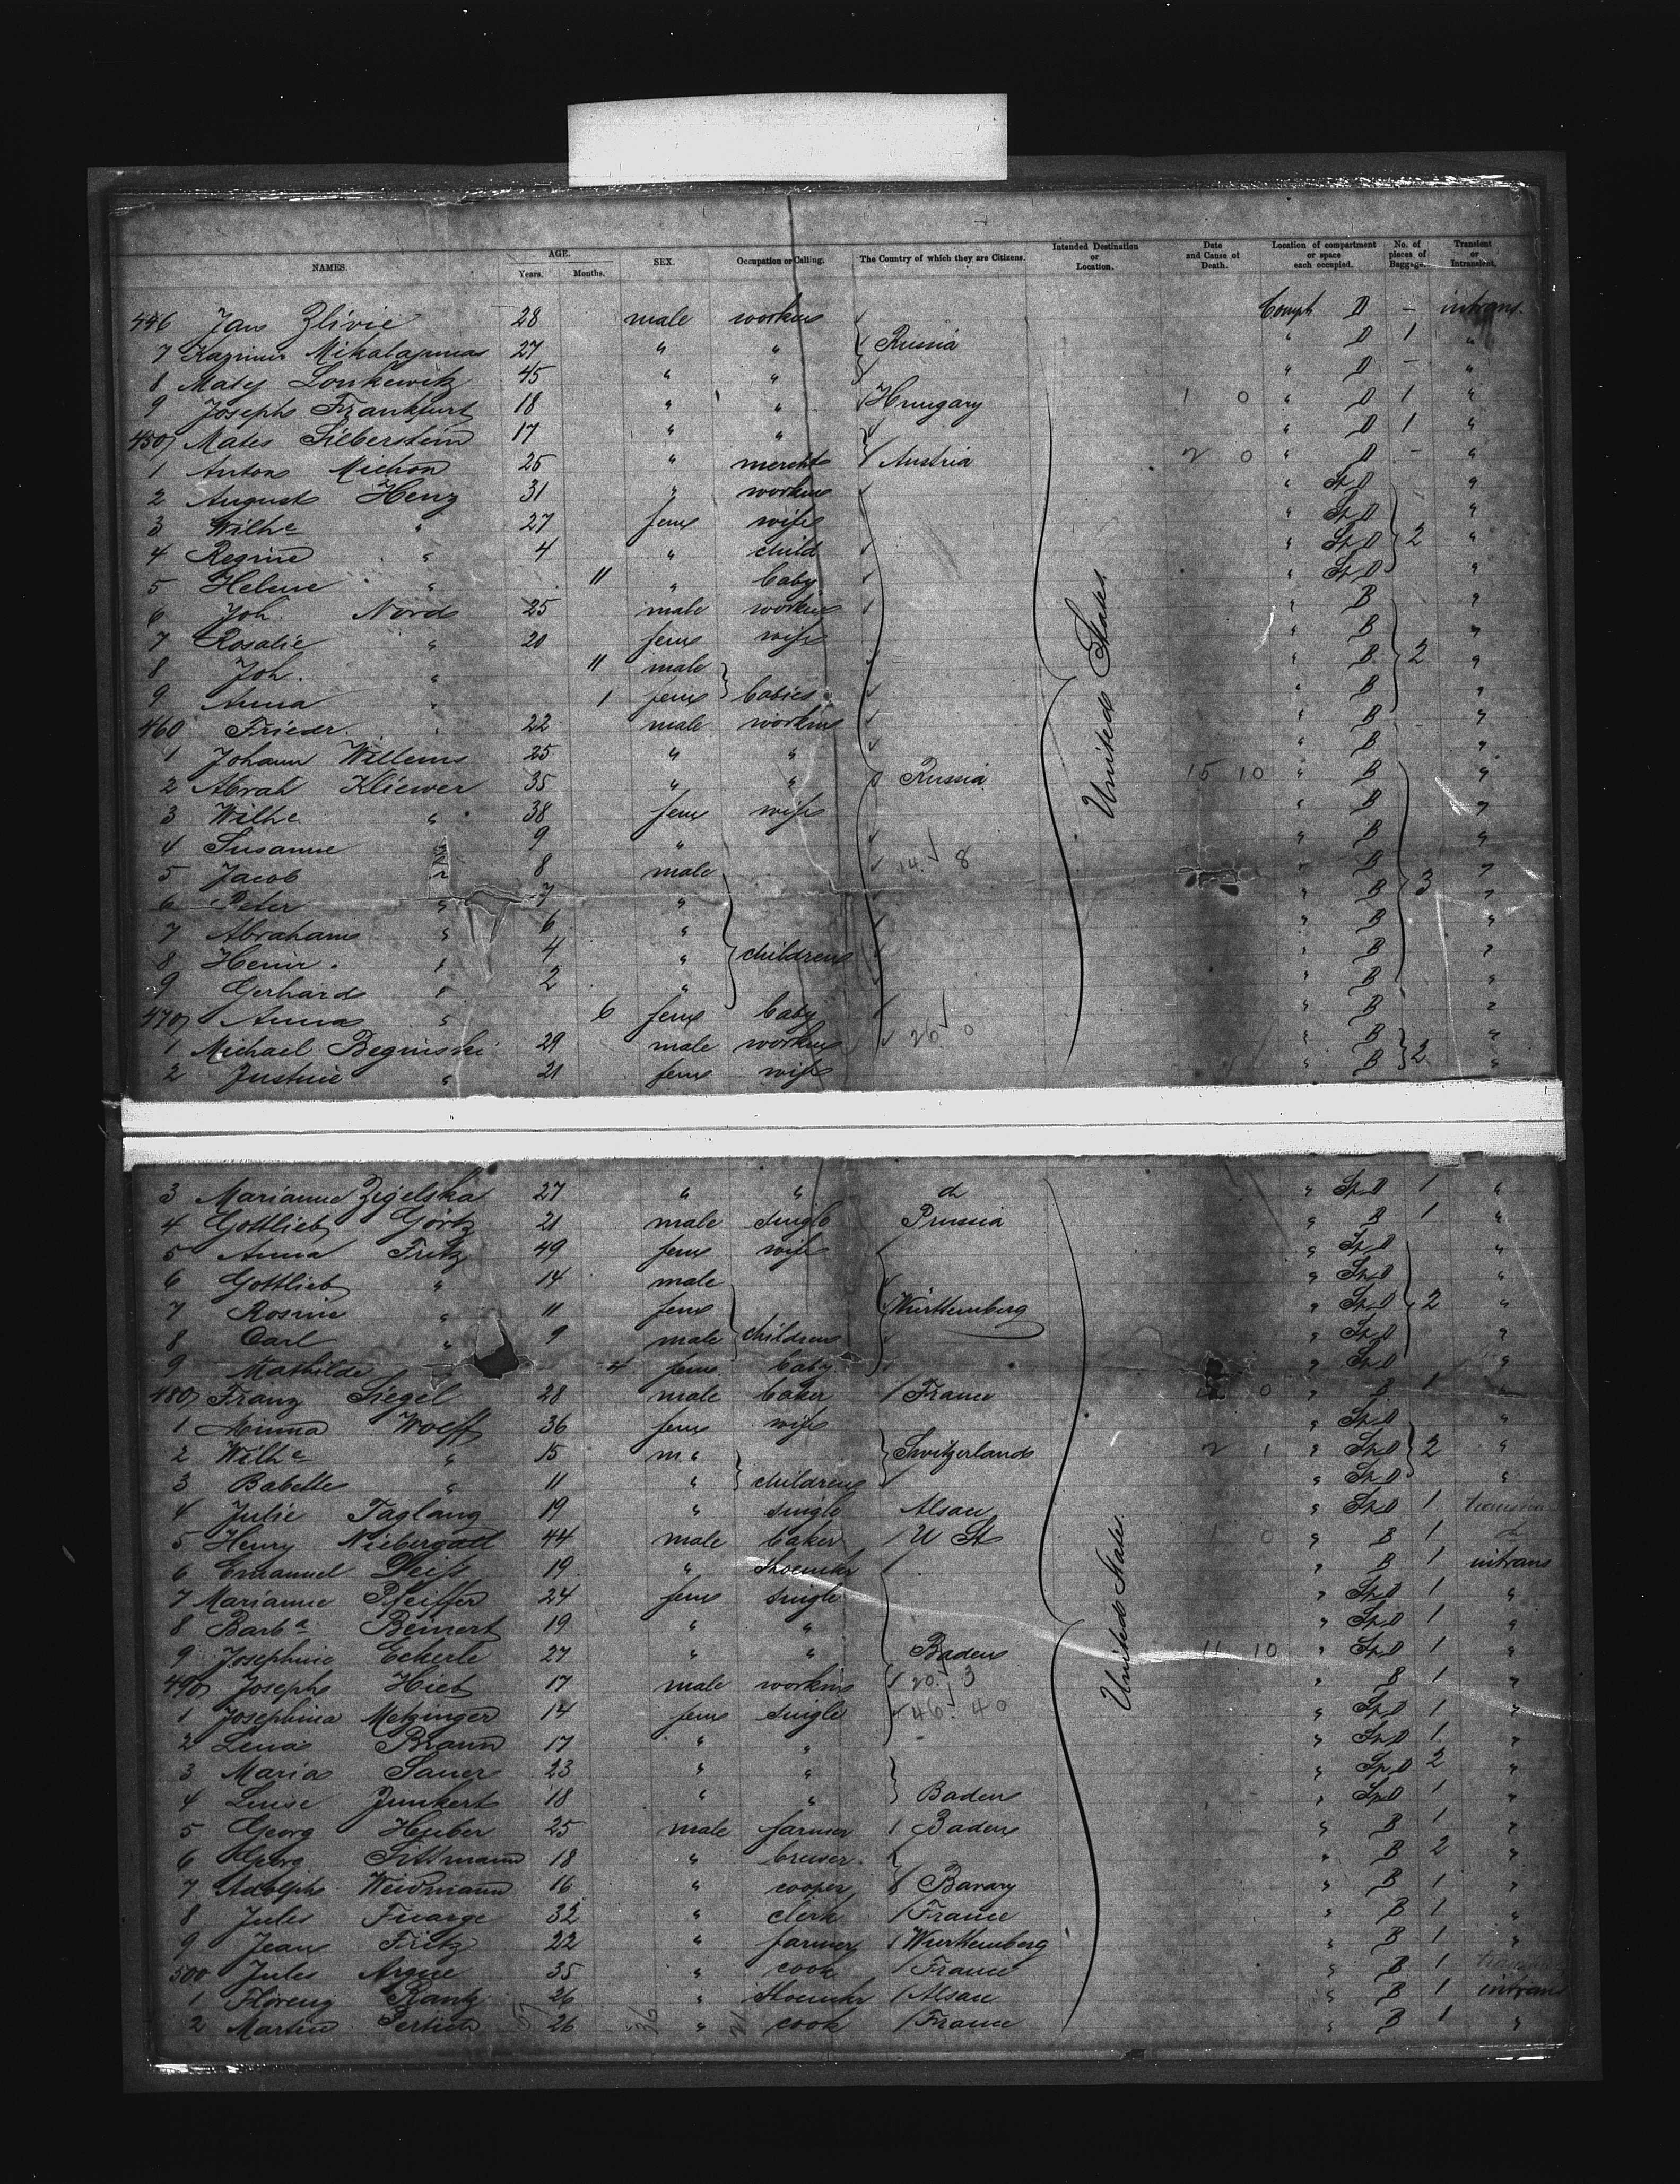 NAMES. AGE. Years. Months. SEX. Occupation or Calling. The Country of which they are Citizens. Intended Destination or Location. Date and Cause of Death. Location of compartment or space each occupied. No. of pieces of Baggage. Transient or Intransient.
446 Jan Zlivie 28 male workm Comph D - intrans.
7 Kazimir 27 " " Russia " D 1 "
8 Matej Lonkewitz 45 " " " D - "
9 Joseph Frankfurt 18 " " Hungary 1 0 " D 1 "
450 Mates Silberstein 17 " " " D 1 "
1 Anton Michon 25 " mercht Austria 2 0 " D - "
2 August Henz 31 " workm " Sp D "
3 Wilhe " 27 fem wife " Sp D "
4 Regine " 4 " child " Sp D 2 "
5 Helene " 11 " baby " Sp D "
6 Joh. Nord 25 male workm " B "
7 Rosalie " 20 fem wife " B "
8 Joh. " 11 male " B 2 "
9 Anna " 1 fem babies " B "
460 Friedr. " 22 male workm " B - "
1 Johann Willems 25 " " " B "
2 Abrah Kliewer 35 " " Russia 15 10 " B "
3 Wilhe " 38 fem wife " B "
4 Susanne " 9 " " B "
5 Jacob " 8 male 14. 8 " B "
6 Peter " 7 " " B 3 "
7 Abraham " 6 " " B "
8 Heinr. " 4 " children " B "
9 Gerhard " 2 " " B "
470 Anna " 6 fem baby " B "
1 Michael Beginski 29 male workm 26. 0 " B "
2 Justine " 21 fem wife " B 2 "
United States
3 Marianne Zigelska 27 " " do " Sp D 1 "
4 Gottlieb Görtz 21 male single Prussia " B 1 "
5 Anna Fritz 49 fem wife " Sp D "
6 Gottlieb " 14 male " Sp D "
7 Rosine " 11 fem Württemberg " Sp D 2 "
8 Carl " 9 male children " Sp D "
9 Mathilde " 4 fem baby " Sp D "
480 Franz Siegel 28 male baker France 0 " B 1 "
1 Minna Wolff 36 fem wife " Sp D "
2 Wilhe " 15 m " Switzerland 2 1 " Sp D 2 "
3 Babette " 11 " children " Sp D "
4 Julie Taglang 19 " single Alsace " Sp D 1
5 Henry Niebergall 44 male baker U St 1 0 " B 1 do
6 Emanuel Deiß 19 " shoemkr " B 1 intrans
7 Marianne Pfeiffer 24 fem single " Sp D 1 "
8 Barba Beinert 19 " " " Sp D 1 "
9 Josephine Eckerle 27 " " Baden 11 10 " Sp D 1 "
490 Joseph Hieb 17 male workm 20. 3 " B 1 "
1 Josephina Metzinger 14 fem single 46. 40 " Sp D 1 "
2 Lena Braun 17 " " " Sp D 1 "
3 Maria Sauer 23 " " " Sp D 2 "
4 Luise Junkert 18 " " Baden " Sp D 1 "
5 Georg Huber 25 male farmer Baden " B 1 "
6 Georg Sittmann 18 " " B 2 "
7 Adolph Weidmann 16 " cooper Bavary " B 1 "
8 Jules 32 " clerk France " B 1 "
9 Jean Fritz 22 " farmer Wurtemberg " B 1 "
500 Jules 35 " cook France " B 1
1 Florenz Rantz 26 " shoemkr Alsace " B 1 intrans
2 Martin 26 36 " 21 cook France " B 1 "
United States.